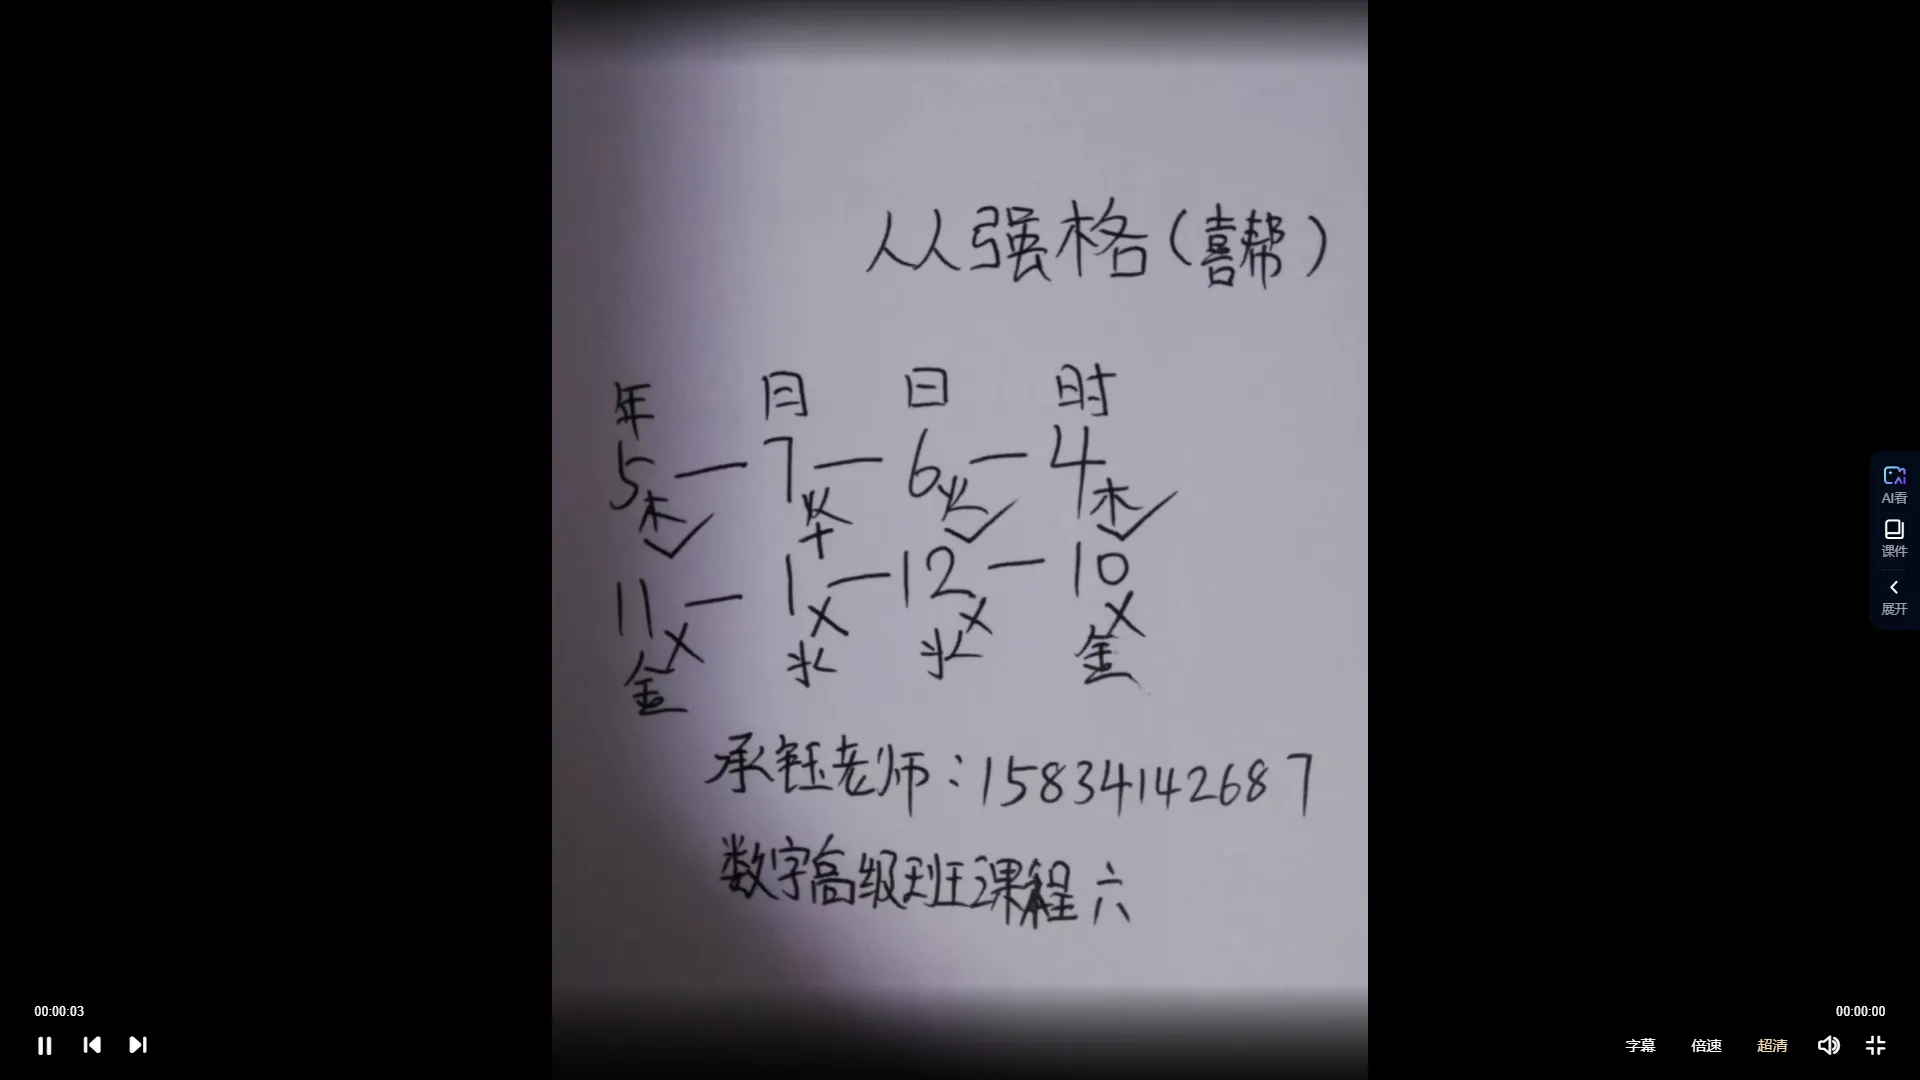 从强格（喜帮）
年 月 日 时
5 — 7 — 6 — 4
木 火 火 木
11 — 1 — 12 — 10
金 水 水 金
承钰老师：15834142687
数字高级班课程六
AI看
课件
展开
00:00:03
00:00:00
字幕 倍速 超清